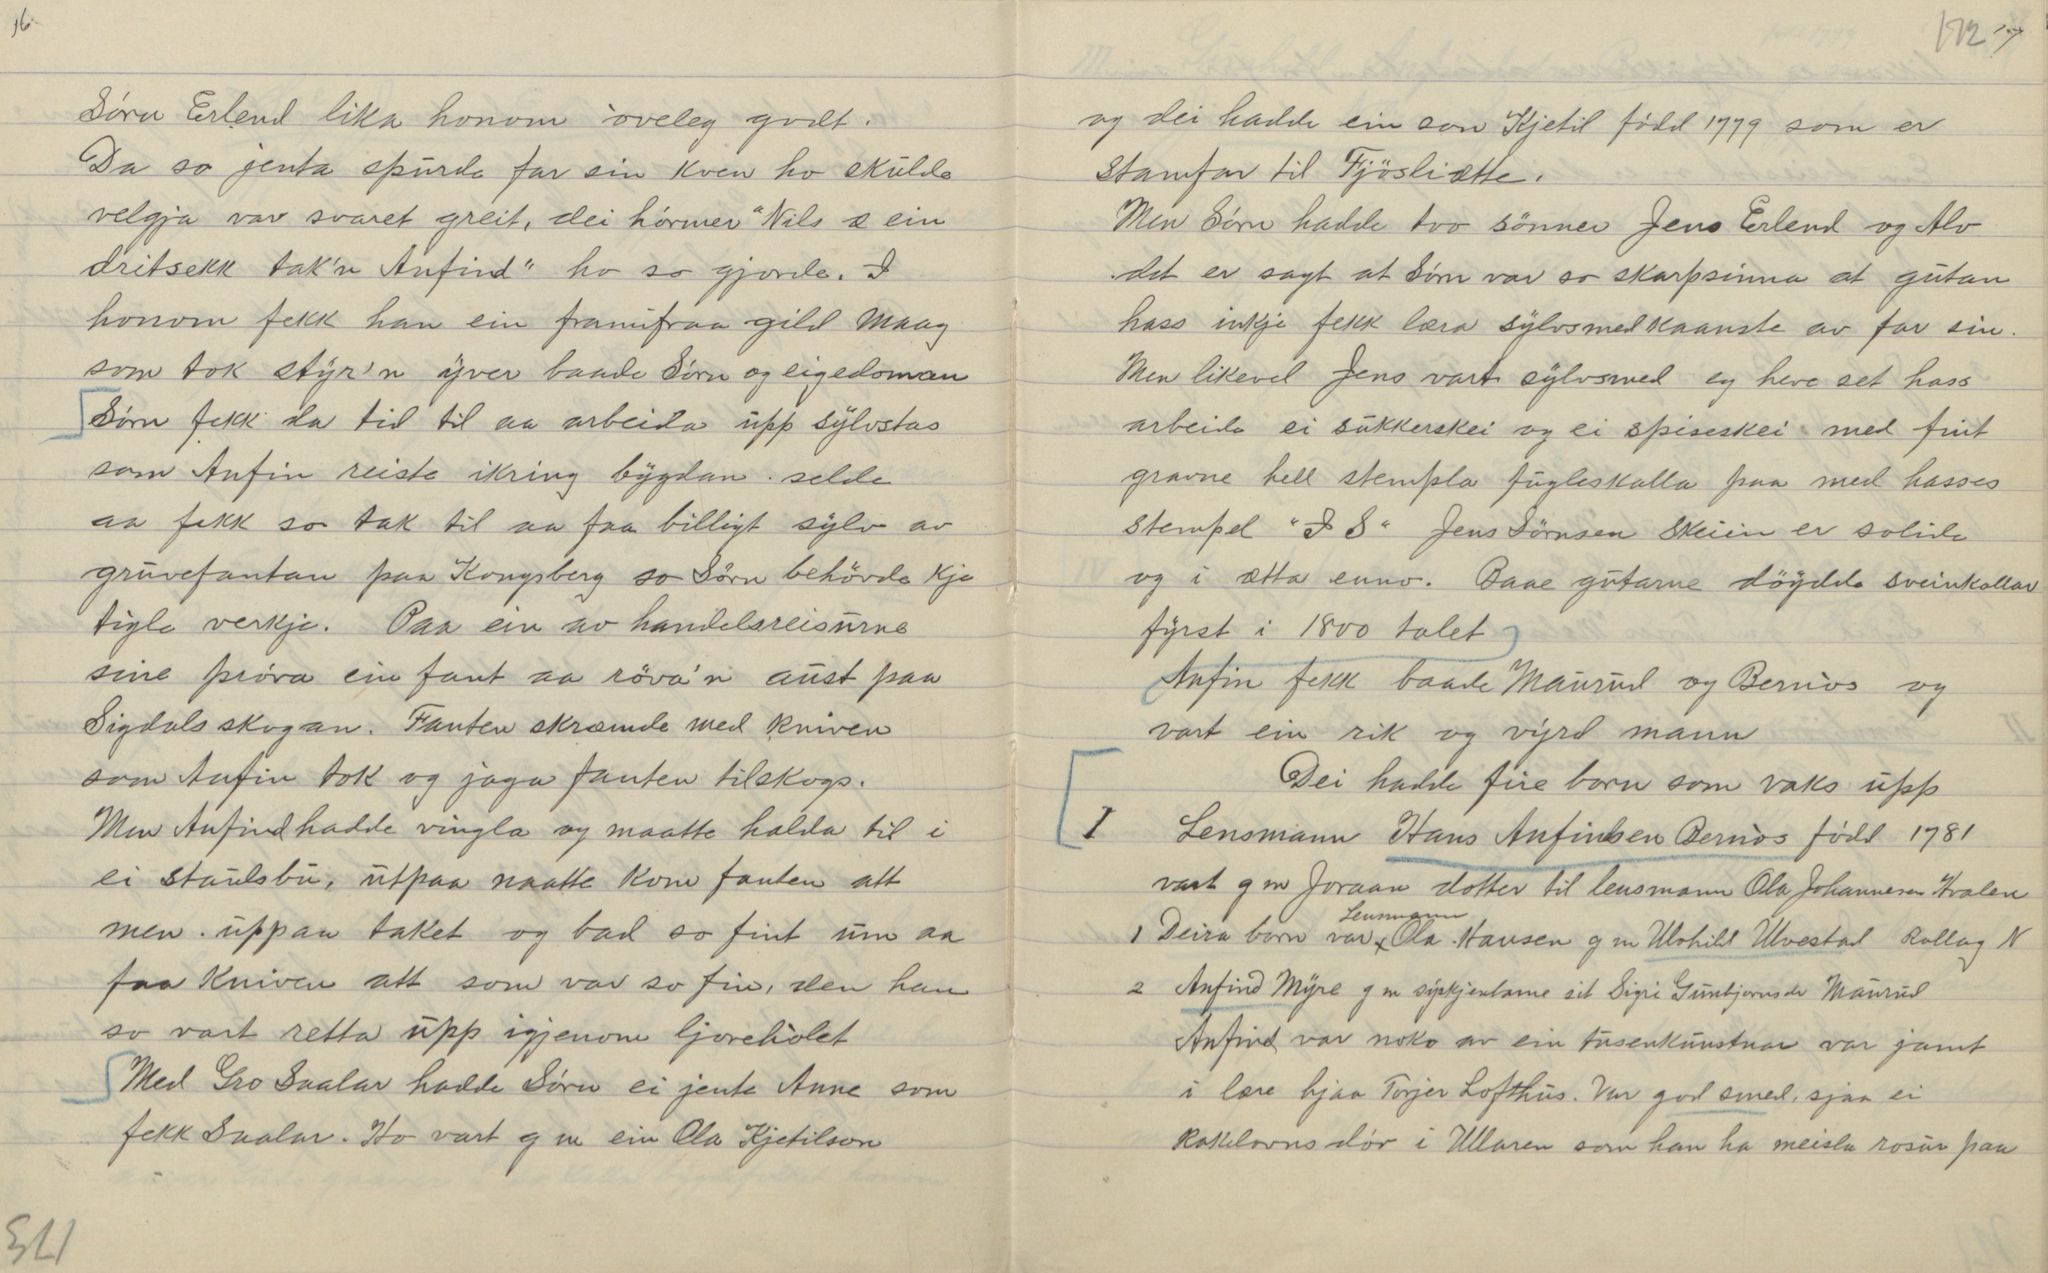 16.
Sórn Erlend lika honom òveleg godt.
Da so jenta spurde far sin kven ho skulde
velgja var svaret greit, dei hórmer "Nils æ ein
dritsekk tak'n Anfind" ho so gjorde. I
honom fekk han ein framifraa gild Maag
som tok styr'n yver baade Sórn og eigedoman
Sórn fekk da tid til aa arbeida upp sylvstas
som Anfin reiste ikring bygdan. selde
aa fekk so tak til aa faa billigt sylv av
gruvefantan paa Kongsberg so Sórn behövde kje
tigle verkje. Paa ein av handelsreisurne
sine próva ein fant aa röva'n aust paa
Sigdalsskogan. Fanten skræmde med kniven
som Anfin tok og jaga fanten tilskogs.
Men Anfind hadde vingla og maatte halda til i
ei staulsbu, utpaa naatte kom fanten att
men. uppaa taket og bad so fint um aa
faa kniven att som var so fin, den han
so vart retta upp igjenom ljoreholet
Med Gro Saalar hadde Sórn ei jente Anne som
fekk Saalar. Ho vart g m ein Ola Kjetilson
172 17
og dei hadde ein son Kjetil född 1779 som er
stamfar til Fjösliætte.
Men Sórn hadde tvo sönner Jens Erlend og Alv
det er sagt at Sórn var so skarpsinna at gutan
hass inkje fekk læra sylvsmedkaanste av far sin.
Men likevel Jens vart sylvsmed eg heve set hass
arbeide ei sukkerskei og ei spiseskei med fint
gravne hell stempla fugleskalla paa med hasses
stempel "I S" Jens Sórnsen Skeiin er solide
og i ætta enno. Baae gutarne döydde sveinkallar
fyrst i 1800 talet
Anfin fekk baade Maurud og Bernòs og
vart ein rik og vyrd mann
Dei hadde fire born som vaks upp
I Lensmann Hans Anfindsen Bernòs född 1781
vart g m Joraan dotter til lensmann Ola Johannesen Kvalen
1 Deira born var Lensmann Ola Hansen g m Ulvhild Ulvestad Rollag N
2 Anfind Myre g m syskjentarne sit Sigri Gunbjornsdr Maurud
Anfind var noko av ein tusenkunstnar var jamt
i lære hjaa Torjer Lofthus. Var god smed, sjaa ei
Kakelovnsdór i Ullaren som han ha meisla rosur paa